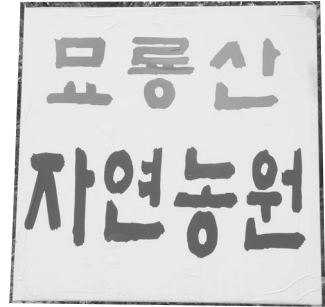 묘룡산
자연농원